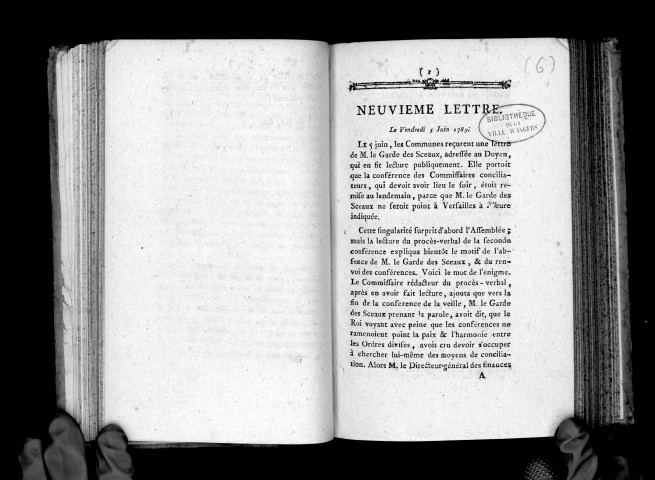 ( 1 )
(6)
NEUVIEME LETTRE.
BIBLIOTHÈQUE
DE LA
VILLE D'ANGERS
Le Vendredi 5 Juin 1789.
LE 5 juin, les Communes reçurent une lettre
de M. le Garde des Sceaux, adreſſée au Doyen,
qui en fit lecture publiquement. Elle portoit
que la conférence des Commiſſaires concilia-
teurs, qui devoit avoir lieu le ſoir, étoit re-
miſe au lendemain, parce que M. le Garde des
Sceaux ne ſeroit point à Verſailles à l'heure
indiquée.
Cette ſingularité ſurprit d'abord l'Aſſemblée ;
mais la lecture du procès-verbal de la ſeconde
conférence expliqua bientôt le motif de l'ab-
ſence de M. le Garde des Sceaux, & du ren-
voi des conférences. Voici le mot de l'énigme.
Le Commiſſaire rédacteur du procès-verbal,
après en avoir fait lecture, ajouta que vers la
fin de la conférence de la veille, M. le Garde
des Sceaux prenant la parole, avoit dit, que le
Roi voyant avec peine que les conférences ne
ramenoient point la paix & l'harmonie entre
les Ordres diviſés, avoit cru devoir s'occuper
à chercher lui-même des moyens de concilia-
tion. Alors M. le Directeur-général des finances
A